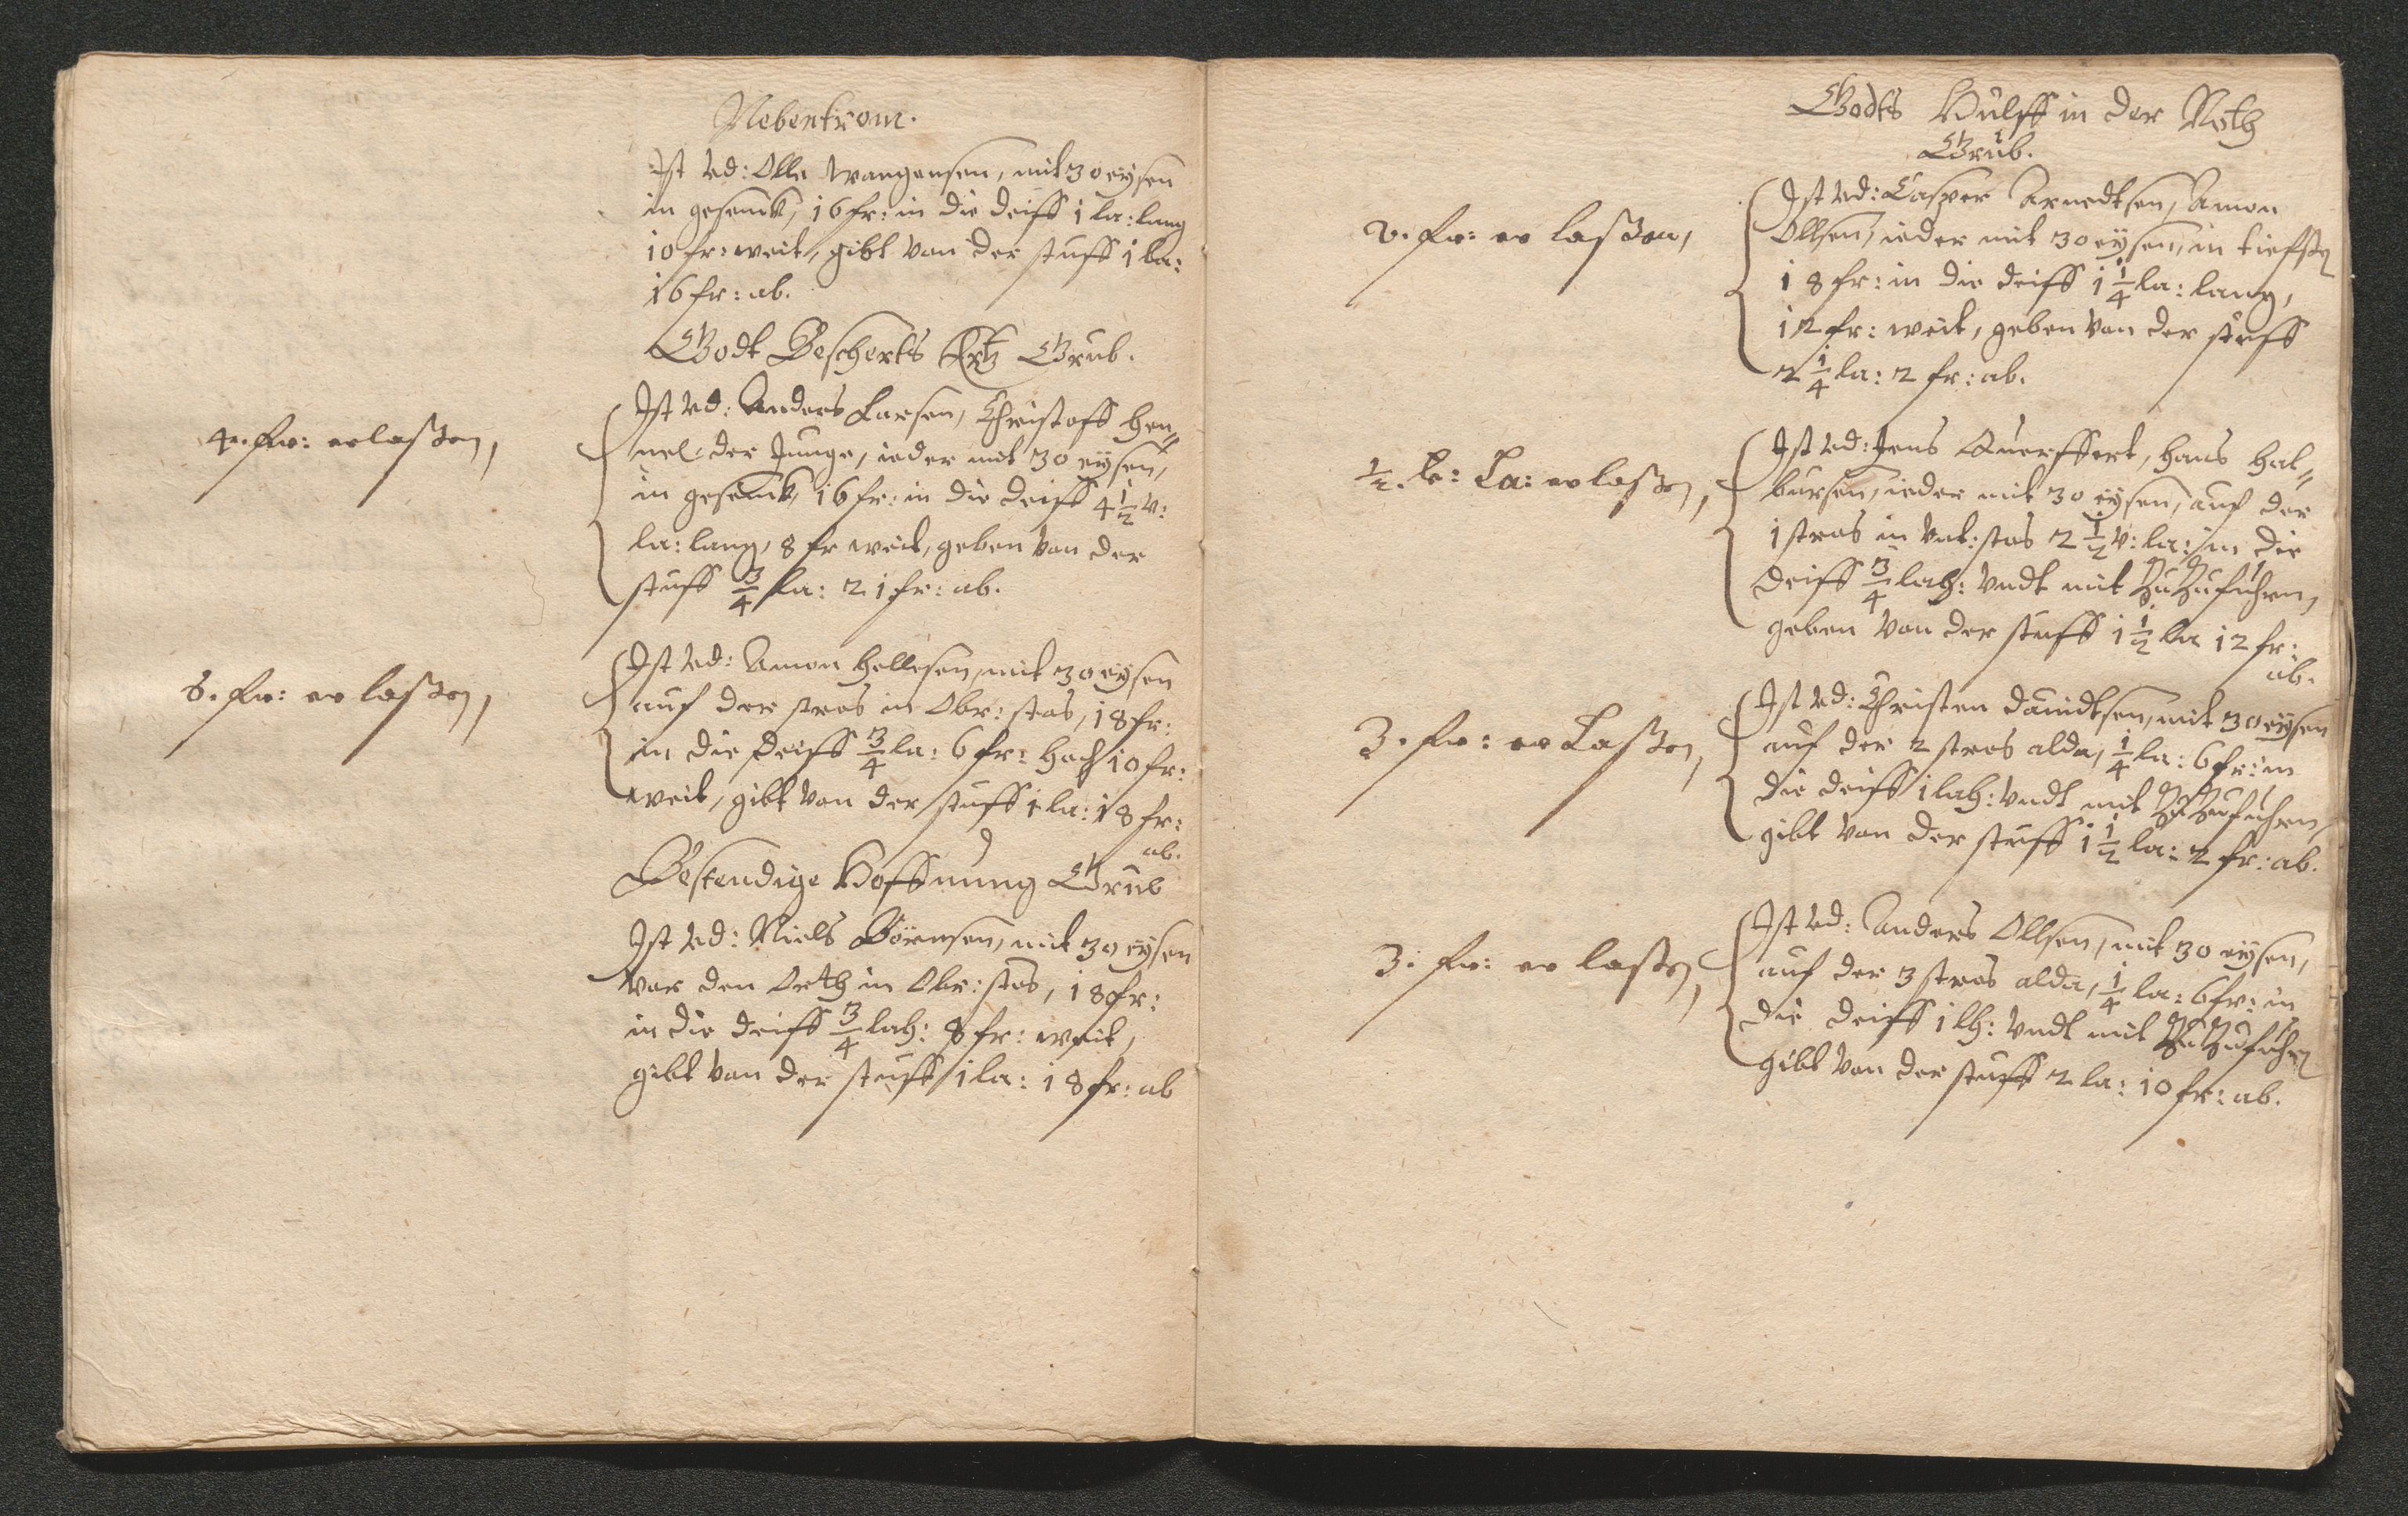 Nebentrom.
Ist vd: Olle Wrangensen, mit 30 eÿsen
in gesenck, 16 fr: in die deiff 1 la: lang
10 fr: weit, gibt van der stuff 1 la:
16 fr: ab.
Godt Bescherts Ertz Grub.
4. fr: erlaßen,
Ist vd: Anders Larsen, Christoff Hen„
nel der Junge, ieder mit 30 eÿsen,
in gesenck, 16 fr: in die deiff 4 1/2 v:
la: lang, 8 fr weit, geben van der
stuff 3/4 la: 21 fr: ab.
8. fr: erlaßen,
Ist vd: Amon Hellesen, mit 30 eÿsen
auf der stros in Obr: stos, 18 fr:
in die deiff 3/4 la: 6 fr: hoch 10 fr:
weit, gibt van der stuff 1 la: 18 fr:
ab.
Bestendige Hoffnung Grub
Ist vd: Niels Börnsen, mit 30 eÿsen
vor den Orth in Obr: stos, 18 fr:
in die deiff 3/4 lah: 8 fr: weit,
gibt van der stuff 1 la: 18 fr: ab
Godts Hulff in der Noth
Grub.
2. fr: erlaßen,
Ist vd: Casper Arnedtsen, Amon
Ollsen, ieder mit 30 eÿsen, in tiefsten
18 fr: in die deiff 1 1/4 la: lang,
12 fr: weit, geben van der stuff
2 1/4 la: 2 fr: ab.
1/2. La: erlaßen,
Ist vd: Jens Querffert, Hans Hal„
bursen, ieder mit 30 eÿsen, auf der
1 stros in vnt: stos 2 1/2 v: la: in die
deiff 3/4 lah: vndt mit Zu Zufuhren,
geben van der stuff 1 1/2 la 12 fr:
ab.
3. fr: erlaßen,
Ist vd: Christen Dauidtsen, mit 30 eÿsen
auf der 2 stros alda, 1/4 la: 6 fr: in
die deiff 1 lah: vndt mit Zu Zufuhren,
gibt van der stuff 1 1/2 la: 2 fr: ab.
3. fr: erlaßen,
Ist vd: Anders Ollsen, mit 30 eÿsen,
auf der 3 stros alda, 1/4 la: 6 fr: in
die deiff 1 lh: vndt mit Zu Zufuhren
gibt van der stuff 2 la: 10 fr: ab.